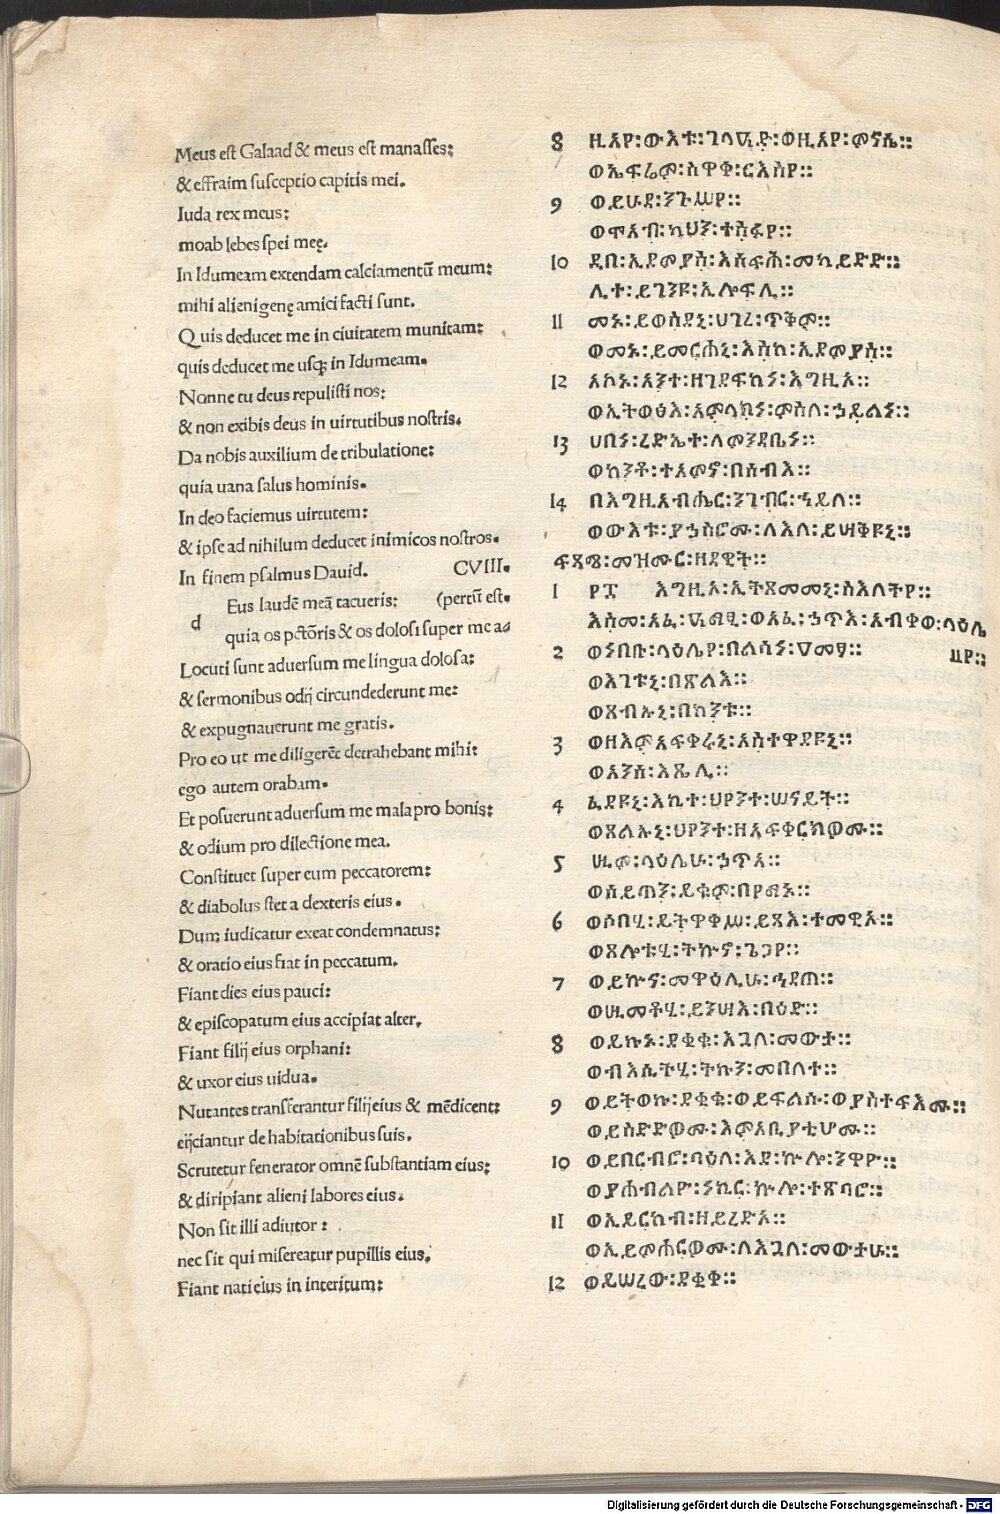 Meus est Galaad & meus est manasses:
& effraim susceptio capitis mei.
Iuda rex meus:
moab lebes spei meę.
In Idumeam extendam calciamentū meum:
mihi alienigenę amici facti sunt.
Quis deducet me in ciuitatem munitam:
quis deducet me usq; in Idumeam.
Nonne tu deus repulisti nos:
& non exibis deus in uirtutibus nostris.
Da nobis auxilium de tribulatione:
quia uana salus hominis.
In deo faciemus uirtutem:
& ipse ad nihilum deducet inimicos nostros.
In finem psalmus Dauid. CVIII.
Eus laudē meā tacueris: (pertū est.
d
quia os pctōris & os dolosi super me a-
Locuti sunt aduersum me lingua dolosa:
& sermonibus odij circundederunt me:
& expugnauerunt me gratis.
Pro eo ut me diligerēt detrahebant mihi:
ego autem orabam.
Et posuerunt aduersum me mala pro bonis:
& odium pro dilectione mea.
Constituet super eum peccatorem:
& diabolus stet a dexteris eius.
Dum iudicatur exeat condemnatus:
& oratio eius fiat in peccatum.
Fiant dies eius pauci:
& episcopatum eius accipiat alter.
Fiant filij eius orphani:
& uxor eius uidua.
Nutantes transferantur filij eius & mēdicent:
eijciantur de habitationibus suis.
Scrutetur fenerator omnē substantiam eius:
& diripiant alieni labores eius.
Non sit illi adiutor:
nec sit qui misereatur pupillis eius.
Fiant nati eius in interitum:
8 ዚአየ፡ውእቱ፡ገላዓድ፡ወዚአየ፡ምናሴ።
ወኤፍሬም፡ስዋቀ፡ርእስየ።
9 ወይሁዳ፡ንጉሥየ።
ወሞአብ፡ካህን፡ተስፋየ።
10 ዲበ፡ኢዶምያስ፡እሰፍሕ፡መካይድድ።
ሊተ፡ይገንዩ፡ኢሎፍሊ።
11 መኑ፡ይወስደኒ፡ሀገረ፡ጥቅም።
ወመኑ፡ይመርሐኒ፡እስከ፡ኢዶምያስ።
12 አኮኑ፡አንተ፡ዘገደፍከነ፡እግዚአ።
ወኢትወፅእ፡አምላክነ፡ምስለ፡ኃይልነ።
13 ሀበነ፡ረድኤተ፡ለምንዳቤነ።
ወከንቶ፡ተአምኖ፡በሰብእ።
14 በእግዚአብሔር፡ንገብር፡ኀይለ።
ወውእቱ፡ያኀስሮሙ፡ለእለ፡ይሣቅዩኒ።
ፍጻሜ፡መዝሙር፡ዘዳዊት።
1 ፻፰ እግዚኦ፡ኢትጸመመኒ፡ስእለትየ።
እስመ፡አፈ፡ዓማፂ፡ወአፈ፡ኃጥእ፡አብቀወ፡ላዕሌ
2 ወነበቡ፡ላዕሌየ፡በልሳነ፡ዐመፃ።
ወእገቱኒ፡በጽልእ።
ወጸብኡኒ፡በከንቱ።
3 ወዘእምአፍቀሩኒ፡አስተዋደዩኒ።
ወአንሰ፡እጼሊ።
4 ፈደዩኒ፡እኪተ፡ህየንተ፡ሠናይት።
ወጸልኡኒ፡ህየንተ፡ዘአፍቀርክዎሙ።
5 ሢም፡ላዕሌሁ፡ኃጥአ።
ወሰይጣን፡ይቁም፡በየማኑ።
6 ወሶበሂ፡ይትዋቀሥ፡ይጻእ፡ተመዊኦ።
ወጸሎቱሂ፡ትኩኖ፡ጌጋየ።
7 ወይኩና፡መዋዕሊሁ፡ኅዳጠ።
ወሢመቶሂ፡ይንሣእ፡በዕድ።
8 ወይኩኑ፡ደቂቁ፡እጓለ፡መውታ።
ወብእሲትሂ፡ትኩን፡መበለተ።
9 ወይትወኩ፡ደቂቁ፡ወይፍልሱ፡ወያስተፍእሙ።
ወይስድድዎሙ፡እምአቢያቲሆሙ።
10 ወይበርብሮ፡ባዕለ፡እዳ፡ኵሎ፡ንዋዮ።
ወያሐብልዮ፡ነኪር፡ኵሎ፡ተጽባሮ።
11 ወኢይርከብ፡ዘይረድኦ።
ወኢይምሐርዎሙ፡ለእጓለ፡መውታሁ።
12 ወይሠረው፡ደቂቀ።
Digitalisierung gefördert durch die Deutsche Forschungsgemeinschaft - DFG